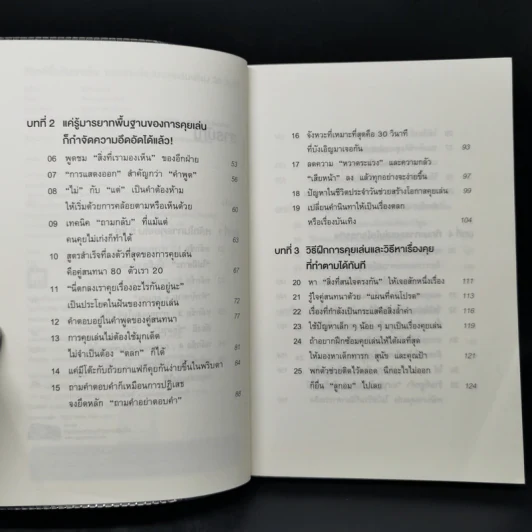 บทที่ 2 แค่รู้มารยาทพื้นฐานของการคุยเล่น
ก็กำจัดความอึดอัดได้แล้ว!
06 พูดชม “สิ่งที่เรามองเห็น” ของอีกฝ่าย 53
07 “การแสดงออก” สำคัญกว่า “คำพูด” 56
08 “ไม่” กับ “แต่” เป็นคำต้องห้าม
ให้เริ่มด้วยการคล้อยตามหรือเห็นด้วย 60
09 เทคนิค “ถามกลับ” ที่แม้แต่
คนคุยไม่เก่งก็ทำได้ 63
10 สูตรสำเร็จที่ลงตัวที่สุดของการคุยเล่น
คือคู่สนทนา 80 ตัวเรา 20 67
11 “นี่ตกลงเราคุยเรื่องอะไรกันอยู่นะ”
เป็นประโยคในฝันของการคุยเล่น 71
12 คำตอบอยู่ในคำพูดของคู่สนทนา 77
13 การคุยเล่นไม่ต้องใช้มุกเด็ด
ไม่จำเป็นต้อง “ตลก” ก็ได้ 81
14 แค่มีโต๊ะกับถ้วยกาแฟก็คุยกันง่ายขึ้นในพริบตา 84
15 ถามคำตอบคำก็เหมือนการปฏิเสธ
จงยึดหลัก “ถามคำอย่าตอบคำ” 88
16 จังหวะที่เหมาะที่สุดคือ 30 วินาที
ที่บังเอิญมาเจอกัน 93
17 ลดความ “หวาดระแวง” และความกลัว
“เสียหน้า” ลง แล้วทุกอย่างจะง่ายขึ้น 97
18 ปัญหาในชีวิตประจำวันช่วยสร้างโอกาสคุยเล่น 99
19 เปลี่ยนคำนินทาให้เป็นเรื่องตลก
หรือเรื่องบันเทิง 104
บทที่ 3 วิธีฝึกการคุยเล่นและวิธีหาเรื่องคุย
ที่ทำตามได้ทันที
20 หา “สิ่งที่สนใจตรงกัน” ให้เจอสักหนึ่งเรื่อง 111
21 รู้ใจคู่สนทนาด้วย “แผนที่คนโปรด” 117
22 เรื่องที่กำลังเป็นกระแสคือสิ่งล้ำค่า 116
23 ใช้ปัญหาเล็ก ๆ น้อย ๆ มาเป็นเรื่องคุยเล่น 119
24 ถ้าอยากฝึกซ้อมคุยเล่นให้ได้ผลที่สุด
ให้มองหาเด็กทารก สุนัข และคุณป้า 121
25 พกตัวช่วยติดไว้ตลอด นึกอะไรไม่ออก
ก็ยื่น “ลูกอม” ไปเลย 124